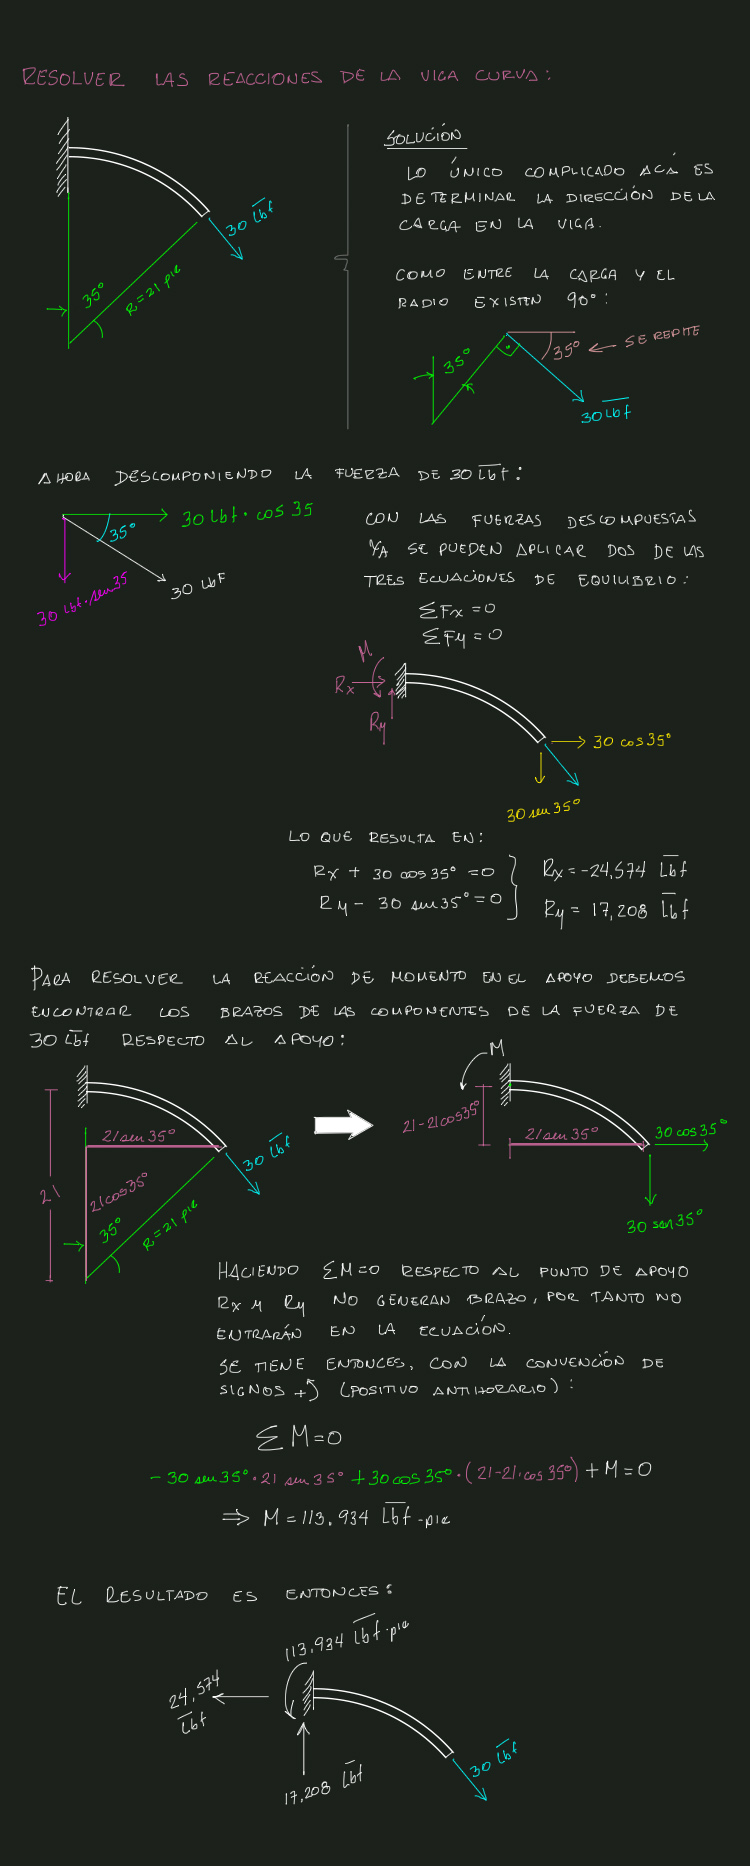 RESOLVER LAS REACCIONES DE LA VIGA CURVA:
30 Lbf
35°
R=21 pie
SOLUCIÓN
LO ÚNICO COMPLICADO ACÁ ES
DETERMINAR LA DIRECCIÓN DE LA
CARGA EN LA VIGA.
COMO ENTRE LA CARGA Y EL
RADIO EXISTEN 90°:
35°
35° ← SE REPITE
30 Lbf
AHORA DESCOMPONIENDO LA FUERZA DE 30 Lbf:
30 Lbf · cos 35
35°
30 Lbf
30 Lbf · sen 35
CON LAS FUERZAS DESCOMPUESTAS
YA SE PUEDEN APLICAR DOS DE LAS
TRES ECUACIONES DE EQUILIBRIO:
ΣFx = 0
ΣFy = 0
M
Rx
Ry
30 cos 35°
30 sen 35°
LO QUE RESULTA EN:
Rx + 30 cos 35° = 0
Ry - 30 sen 35° = 0
Rx = -24,574 Lbf
Ry = 17,208 Lbf
PARA RESOLVER LA REACCIÓN DE MOMENTO EN EL APOYO DEBEMOS
ENCONTRAR LOS BRAZOS DE LAS COMPONENTES DE LA FUERZA DE
30 Lbf RESPECTO AL APOYO:
21 sen 35°
30 Lbf
21
21 cos 35°
35°
R=21 pie
M
21-21 cos 35°
21 sen 35°
30 cos 35°
30 sen 35°
HACIENDO ΣM=0 RESPECTO AL PUNTO DE APOYO
Rx y Ry NO GENERAN BRAZO, POR TANTO NO
ENTRARÁN EN LA ECUACIÓN.
SE TIENE ENTONCES, CON LA CONVENCIÓN DE
SIGNOS + (POSITIVO ANTIHORARIO):
ΣM=0
- 30 sen 35° · 21 sen 35° + 30 cos 35° · (21-21·cos 35°) + M = 0
⇒ M = 113,934 Lbf-pie
EL RESULTADO ES ENTONCES:
113,934 Lbf·pie
24,574
Lbf
30 Lbf
17,208 Lbf